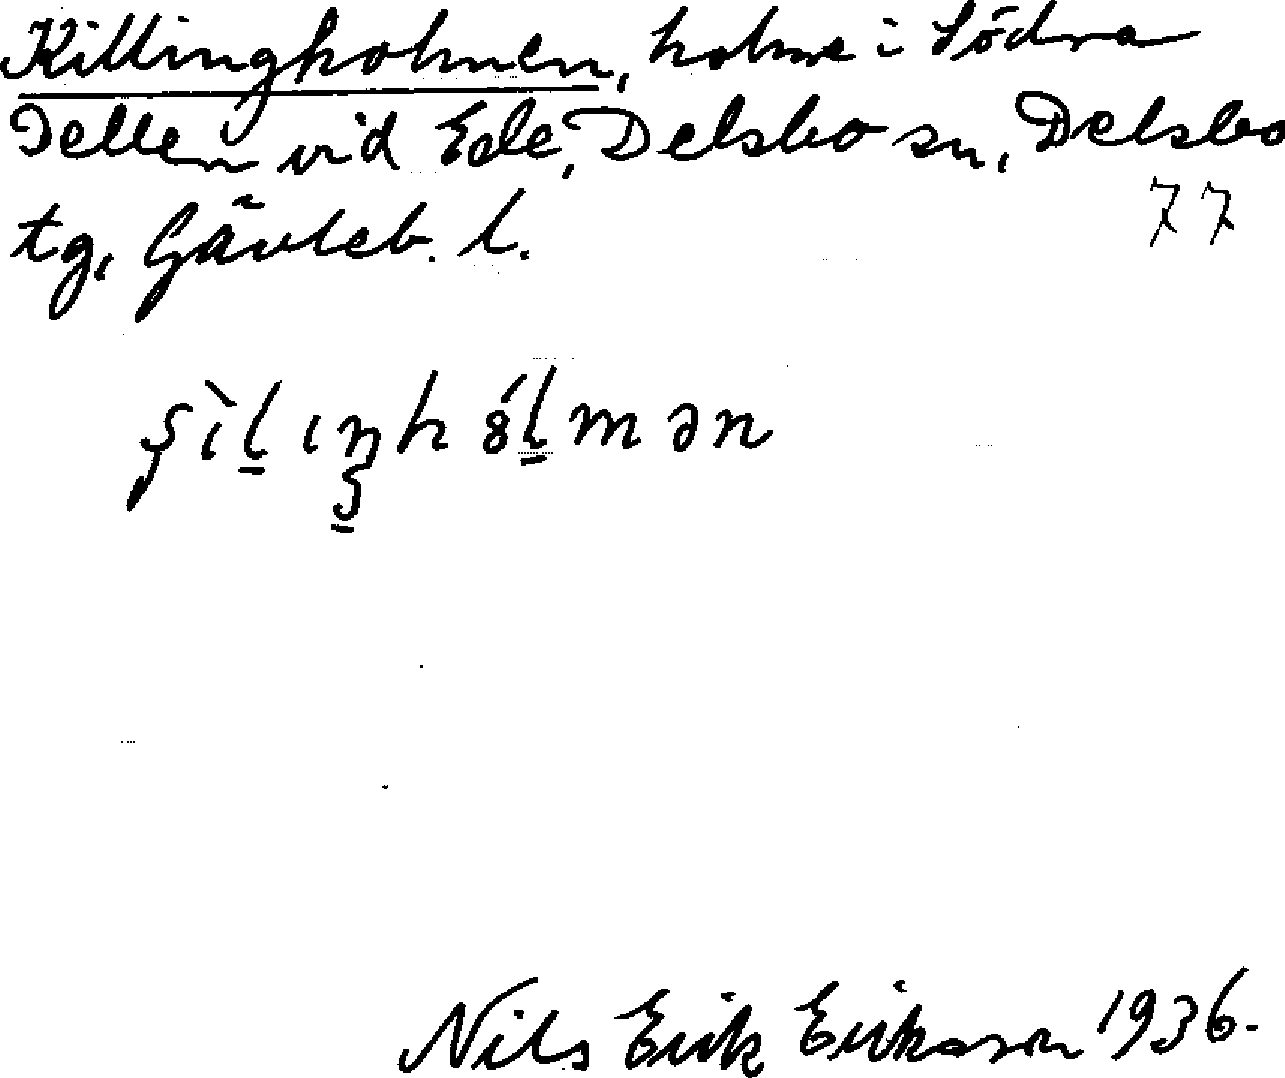 Killingholmen, holme i Södra
Dellen vid Ede, Delsbo sn, Delsbo
tg, Gävleb. l.
77
Nils Erik Eriksson 1936.